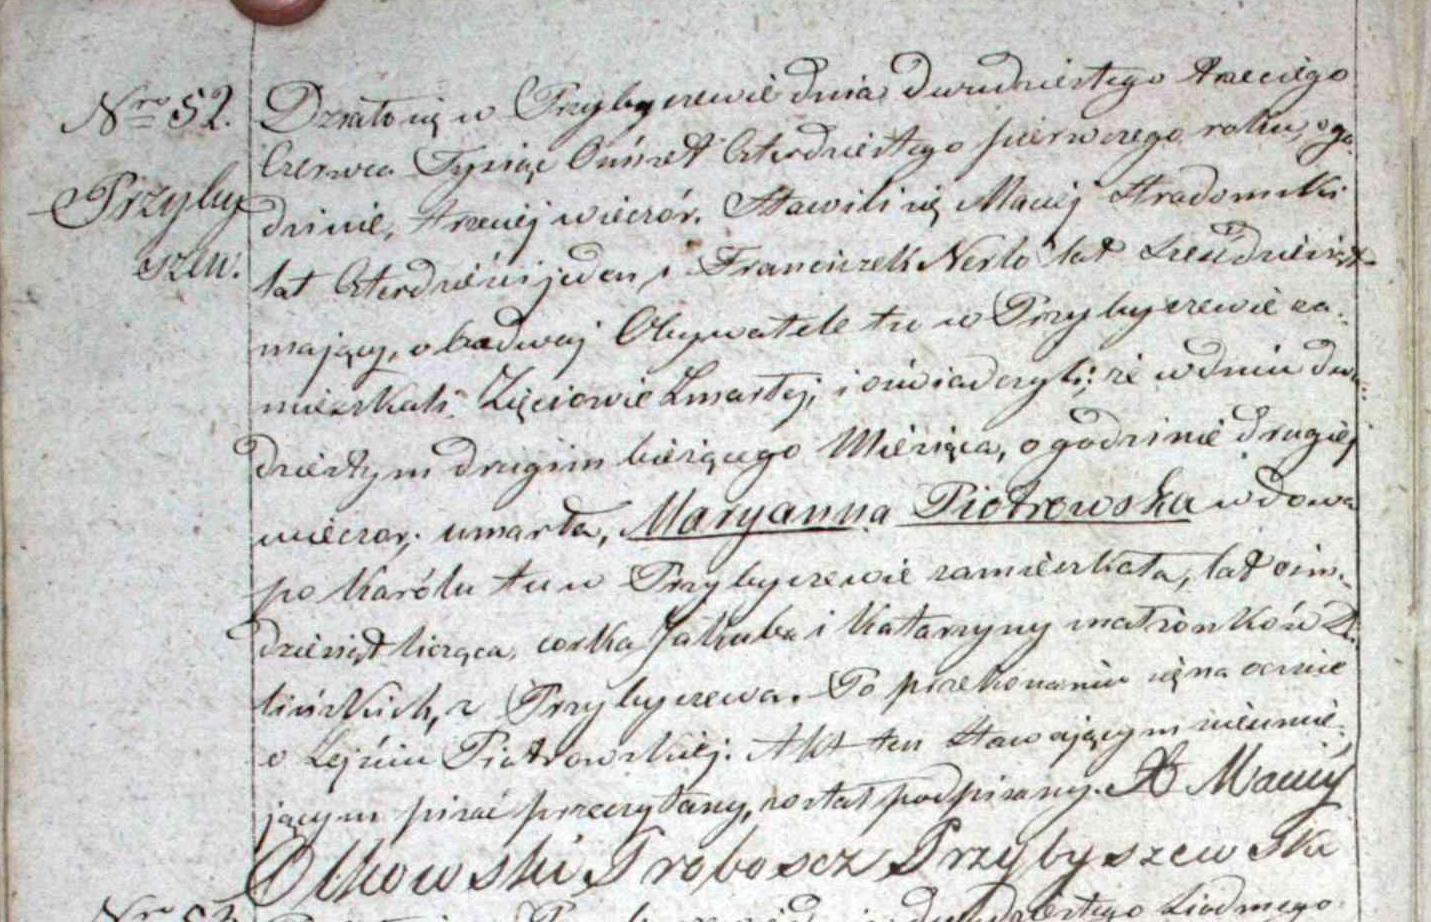 Nro 52.
Przyby
szew.
Działo się w Przybyszewie dnia dwudziestego trzeciego
Czerwca Tysiąc Ośmset Czterdziestego pierwszego roku, o go-
dzinie, trzeciej wieczór. Stawili się Maciej Stradomski
lat Czterdzieści jeden, i Franciszek Nerlo lat Sześćdziesiąt
mający, obadwaj Obywatele tu w Przybyszewie za-
mieszkali Zięciowie Zmarłej, i oświadczyli; że w dniu dwu-
dziestym drugim bieżącego Miesiąca, o godzinie drugiej
wieczor, umarła, Maryanna Piotrowska wdowa
po Karólu tu w Przybyszewie zamieszkała, lat ośm-
dziesiąt licząca, corka Jakuba i Katarzyny małżonków
z Przybyszewa. Po przekonaniu się na ocznie
o Zejściu Piotrowskiej. Akt ten Stawającym nieumie-
jącym pisać przeczytany, został podpisany. X Maciej
Olkowski Proboscz Przybyszewski
Nro 53
dwudziestego Siodmego